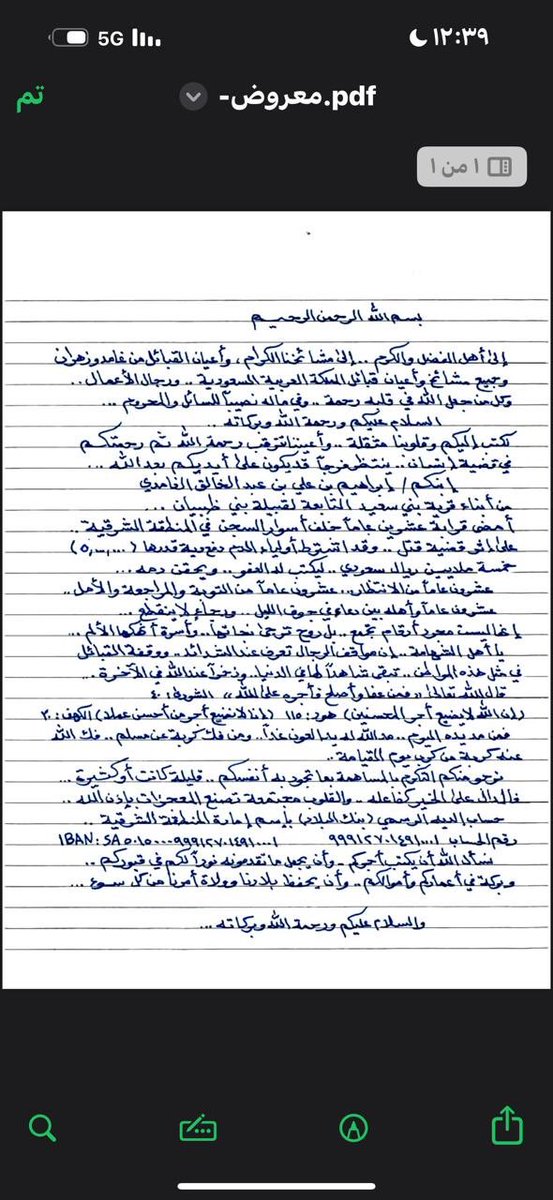 ١٢:٣٩
5G
تم
معروض-.pdf
١ من ١
بسم الله الرحمن الرحيم
إلى أهل الفضل والكرم .. إلى مشائخنا الكرام ، وأعيان القبائل من غامد وزهران
وجميع مشائخ وأعيان قبائل المملكة العربية السعودية .. ورجال الأعمال ..
وكل من جعل الله في قلبه رحمة .. وفي ماله نصيباً للسائل والمحروم ...
السلام عليكم ورحمة الله وبركاته ..
نكتب إليكم وقلوبنا مثقلة .. وأعيننا ترقب رحمة الله ثم رحمتكم
في قضية إنسان .. ينتظر فرجاً قد يكون على أيديكم بعد الله ...
إبنكم / إبراهيم بن علي بن عبد الخالق الغامدي
من أبناء قرية بني سعيد التابعة لقبيلة بني ظبيان ...
أمضى قرابة عشرين عاماً خلف أسوار السجن في المنطقة الشرقية ..
على إثر قضية قتل .. وقد اشترط أولياء الدم دفع دية قدرها (٥,٠٠٠,٠٠٠)
خمسة ملايين ريال سعودي .. ليكتب له العفو .. ويحقن دمه ...
عشرون عاماً من الانتظار .. عشرون عاماً من التوبة والمراجعة والأمل ..
عشرون عاماً وأهله بين دعاء في جوف الليل .. ورجاء لا ينقطع ...
إنها ليست مجرد أرقام تجمع .. بل روح ترجى نجاتها .. وأسرة أنهكها الألم ...
يا أهل الشهامة .. إن مواقف الرجال تعرف عند الشدائد .. ووقفة القبائل
في مثل هذه المواطن .. تبقى شاهداً لها في الدنيا .. وذخراً عند الله في الآخرة ..
قال الله تعالى « فمن عفا وأصلح فأجره على الله » الشورى: ٤٠
(إن الله لا يضيع أجر المحسنين) هود: ١١٥ (إنا لا نضيع أجر من أحسن عملا) الكهف: ٣٠
فمن مد يده اليوم .. مد الله له يد العون غداً .. ومن فك كربة عن مسلم .. فك الله
عنه كربة من كرب يوم القيامة ..
نرجو منكم التكرم بالمساهمة بما تجود به أنفسكم .. قليلة كانت أو كثيرة ...
فالدال على الخير كفاعله .. والقلوب مجتمعة تصنع المعجزات بإذن الله ..
حساب الدية الرسمي (بنك البلاد) بإسم إمارة المنطقة الشرقية ..
رقم الحساب
IBAN:
نسأل الله أن يكتب أجركم .. وأن يجعل ما تقدمونه نوراً لكم في قبوركم ..
وبركة في أعماركم وأموالكم .. وأن يحفظ بلادنا وولاة أمرنا من كل سوء ...
والسلام عليكم ورحمة الله وبركاته ...